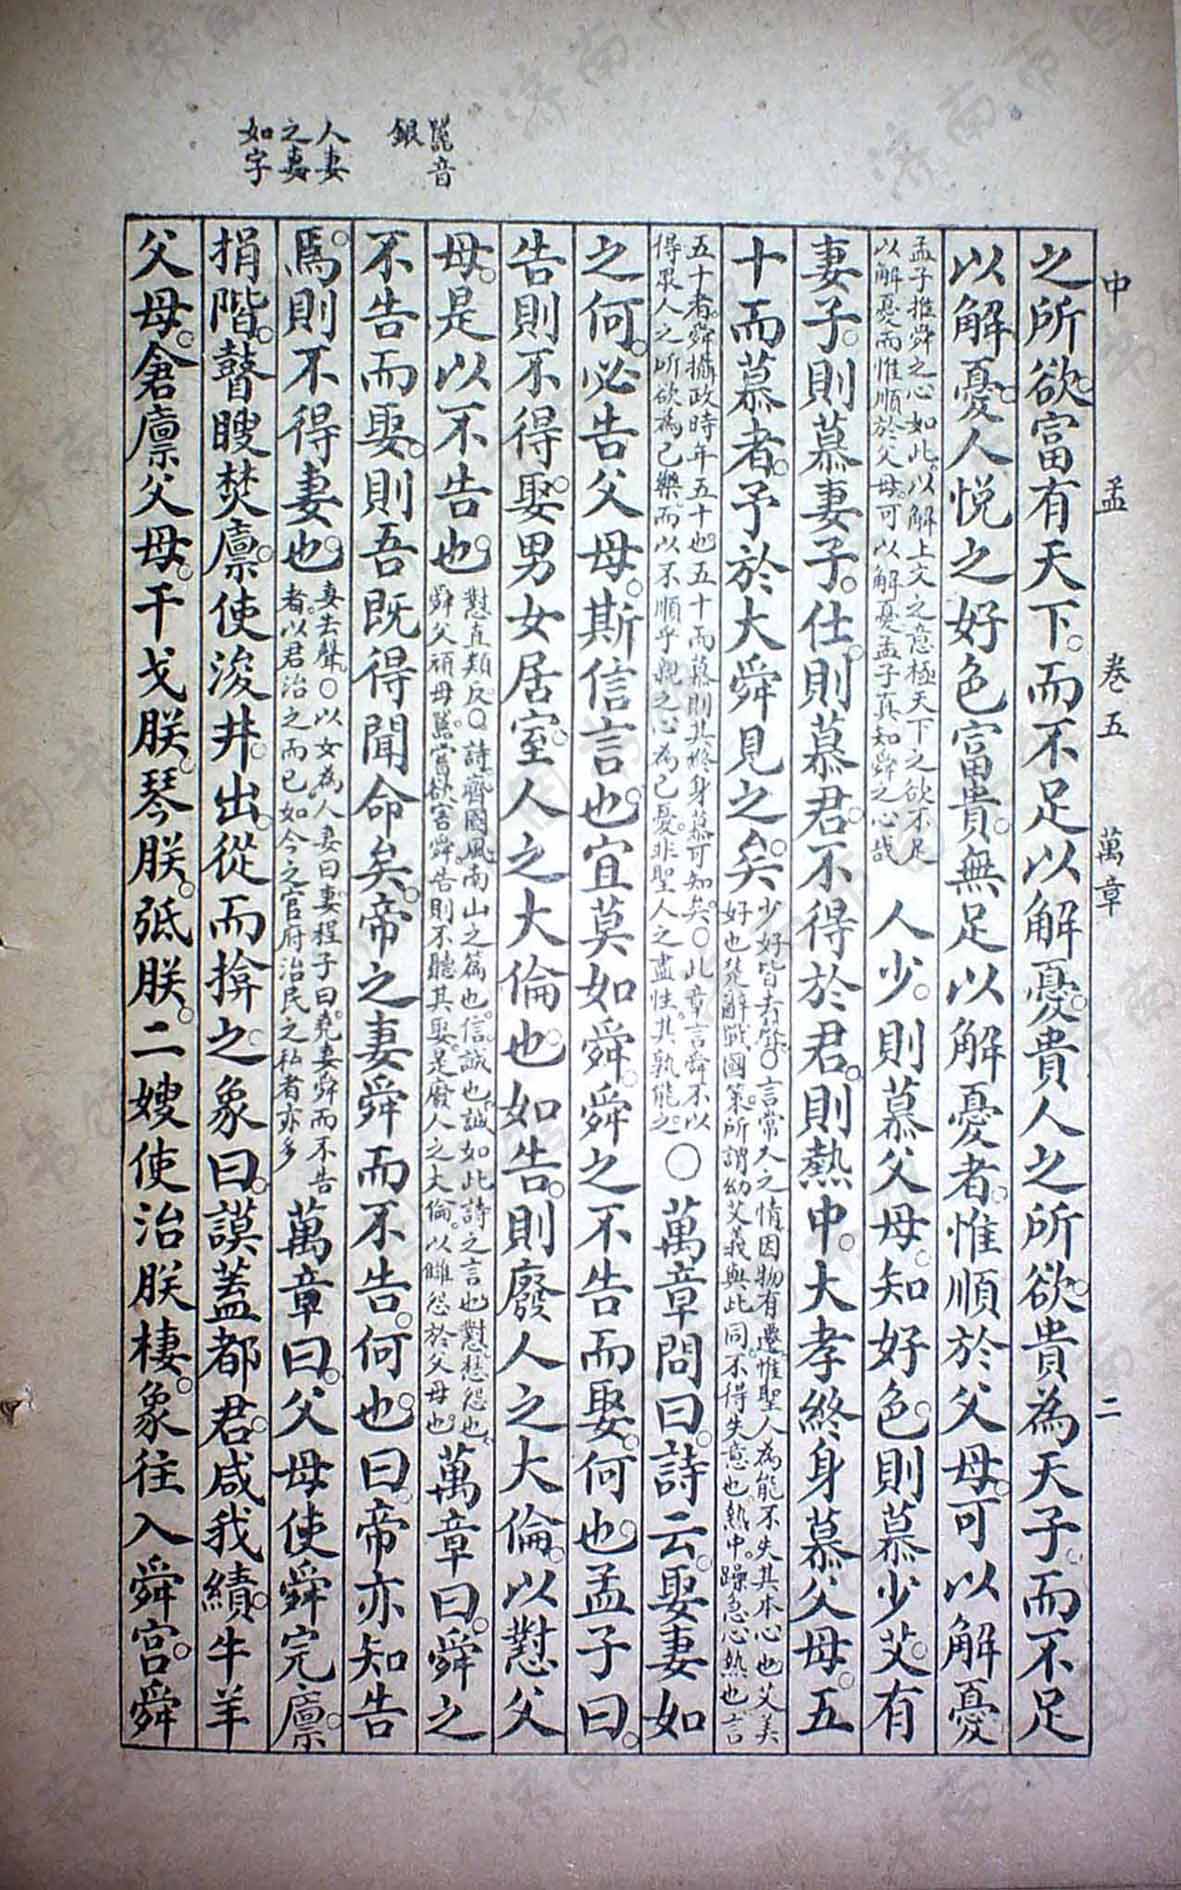 嚚音
銀
人妻
之妻
如字
中 孟 卷五 萬章 二
之所欲。富有天下。而不足以解憂。貴人之所欲。貴為天子。而不足
以解憂。人悅之好色富貴。無足以解憂者。惟順於父母。可以解憂
孟子推舜之心如此。以解上文之意極天下之欲不足
以解憂而惟順於父母。可以解憂孟子真知舜之心哉
人少。則慕父母。知好色。則慕少艾。有
妻子。則慕妻子。仕。則慕君。不得於君。則熱中。大孝終身慕父母。五
十而慕者。予於大舜見之矣。
少好皆去聲。○言常人之情。因物有遷惟聖人為能不失其本心也艾美
好也楚辭戰國策。所謂幼艾義與此同。不得失意也。熱中。躁急心熱也。言
五十者。舜攝政時年五十也五十而慕則其終身慕可知矣。○此章言舜不以
得眾人之所欲為己樂。而以不順乎親之心為己憂。非聖人之盡性。其孰能之
○萬章問曰。詩云。娶妻如
之何。必告父母。斯信言也。宜莫如舜。舜之不告而娶。何也。孟子曰。
告則不得娶。男女居室。人之大倫也。如告。則廢人之大倫。以懟父
母。是以不告也。
懟直類反。○詩。齊國風南山之篇也。信。誠也。誠如此詩之言也懟怨也。
舜父頑母嚚。常欲害舜。告則不聽其娶。是廢人之大倫。以讎怨於父母也。
萬章曰。舜之
不告而娶。則吾既得聞命矣。帝之妻舜而不告。何也。曰。帝亦知告
焉。則不得妻也。
妻去聲。○以女為人妻曰妻程子曰。堯妻舜而不告
者。以君治之而已如今之官府治民之私者亦多
萬章曰。父母使舜完廩。
捐階。瞽瞍焚廩。使浚井。出。從而揜之。象曰。謨蓋都君。咸我績。牛羊
父母。倉廩父母。干戈朕。琴朕。弤朕。二嫂使治朕棲。象往入舜宮。舜